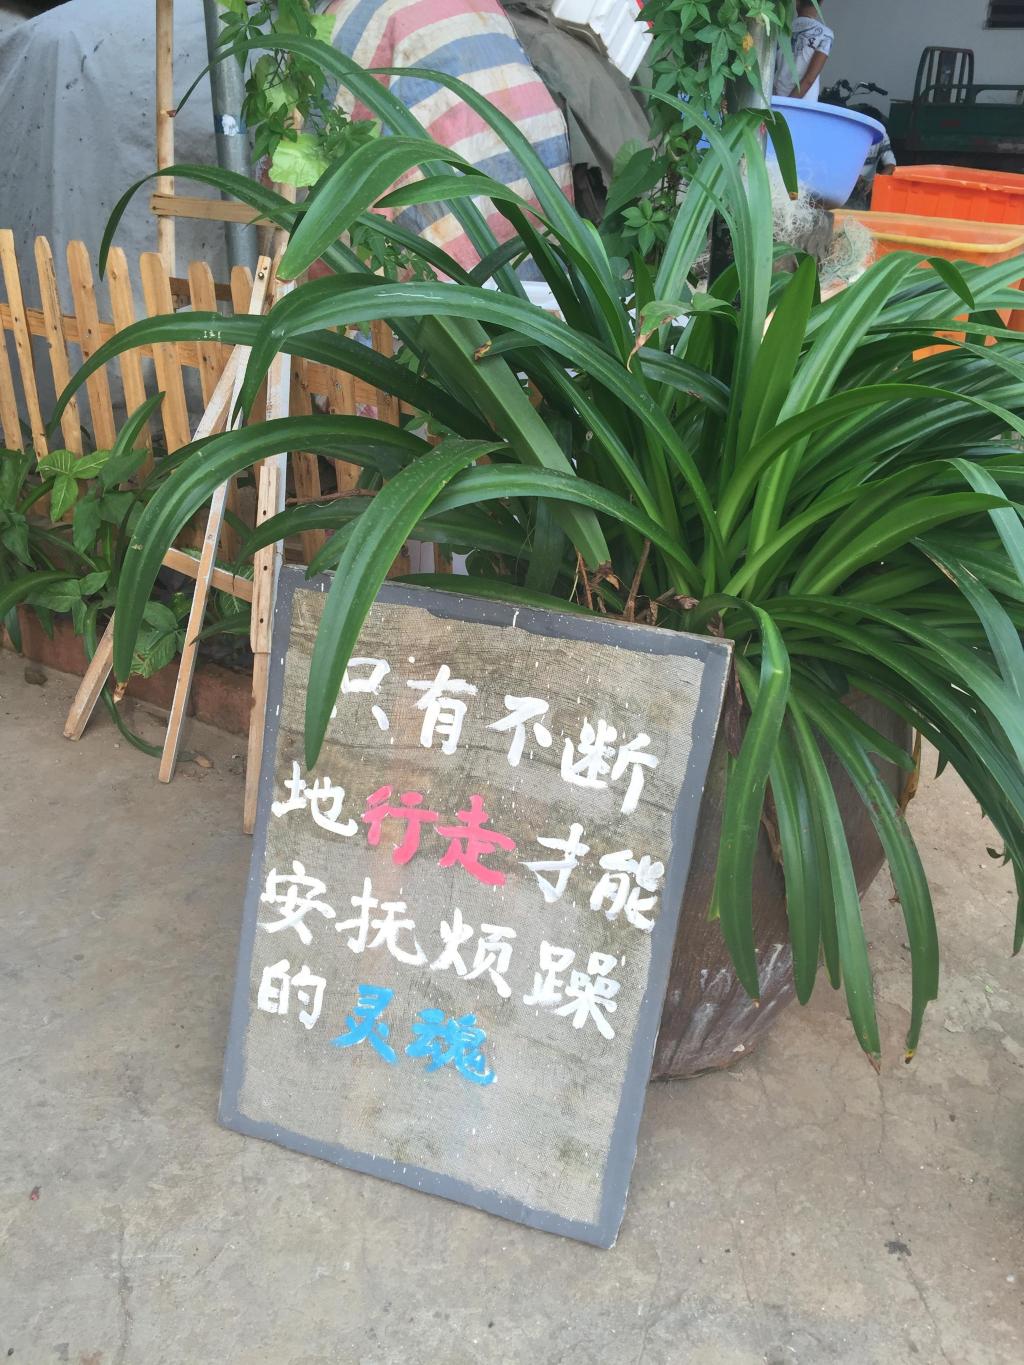 只有不断
地行走才能
安抚烦躁
的灵魂